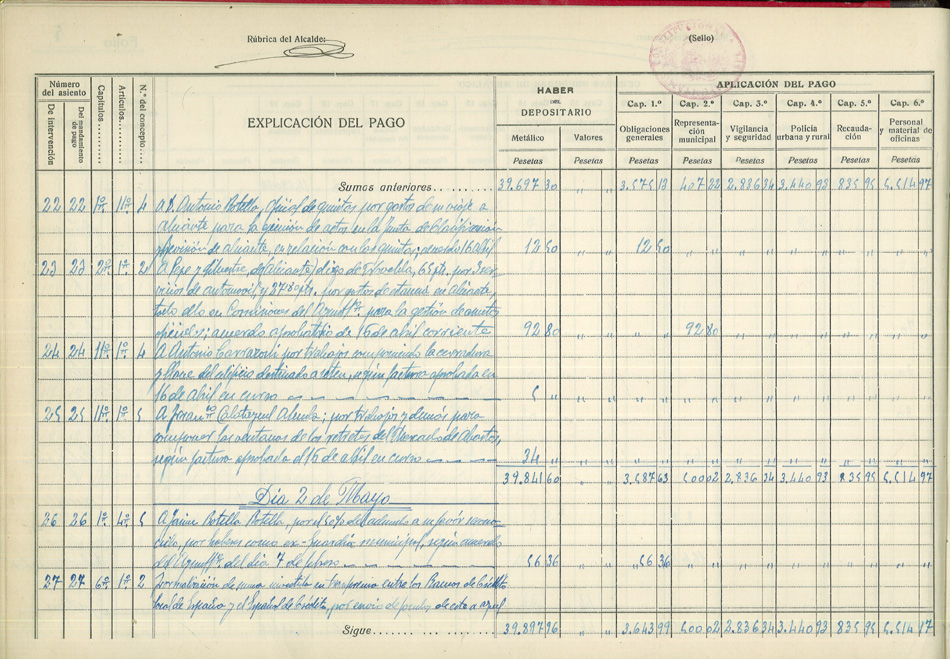 Rúbrica del Alcalde:
(Sello)
Número del asiento
De intervención
Del mandamiento de pago
Capítulos
Artículos
N.º del concepto
EXPLICACIÓN DEL PAGO
HABER
DEL
DEPOSITARIO
Metálico
Valores
Pesetas Pesetas
APLICACIÓN DEL PAGO
Cap. 1.º Cap. 2.º Cap. 3.º Cap. 4.º Cap. 5.º Cap. 6.º
Obligaciones generales
Representación municipal
Vigilancia y seguridad
Policía urbana y rural
Recaudación
Personal y material de oficinas
Pesetas Pesetas Pesetas Pesetas Pesetas Pesetas
Sumas anteriores 39.697 30 " " 3.575 13 407 22 2.836 34 3.440 93 835 95 5.514 97
22 22 1º 11º 4 A D. Antonio Botella, por gastos de su viaje a
Alicante para la de actos en la Junta de Clasificación
y Revisión de Alicante, en relación con las quintas; 16 abril 12 50 " " 12 50 " " " " "
23 23 2º 1º 2 A Pepe y Silvestre, de (Alicante) 65 pts. por Ser-
vicios de automóvil y 27'80 pts. por gastos de estancia en Alicante,
todo ello en Comisiones del Ayunttº para la gestión de asuntos
oficiales; acuerdo aprobatorio de 16 de abril corriente 92 80 " " " " 92 80 " " " "
24 24 11º 1º 4 A Antonio por trabajos componiendo la cerradura
y llave del edificio destinado a según factura aprobada en
16 de abril en curso 5 " " " " " " " " "
25 25 11º 1º 5 A Franº Calatayud por trabajos y demás para
componer las ventanas de los retretes del Mercado de Abastos,
según factura aprobada el 16 de abril en curso 34 " " " " " " " " "
39.841 60 3.587 63 500 02 2.836 34 3.440 93 835 95 5.514 97
Día 2 de Mayo
26 26 1º 4º 5 A Jaime Botella Botella, por el 50% del adeudo a su favor recono-
cido, por haberes como ex-Guardia municipal, según acuerdo
del Ayunttº del día 7 de febrero 56 36 " " 56 36 " " " " "
27 27 6º 1º 2 Formalización de suma invertida en entre los Bancos de Crédito
local de España y el Español de Crédito, por envío de fondos de este a aquel
Sigue 39.897 96 " " 3.643 99 500 02 2.836 34 3.440 93 835 95 5.514 97